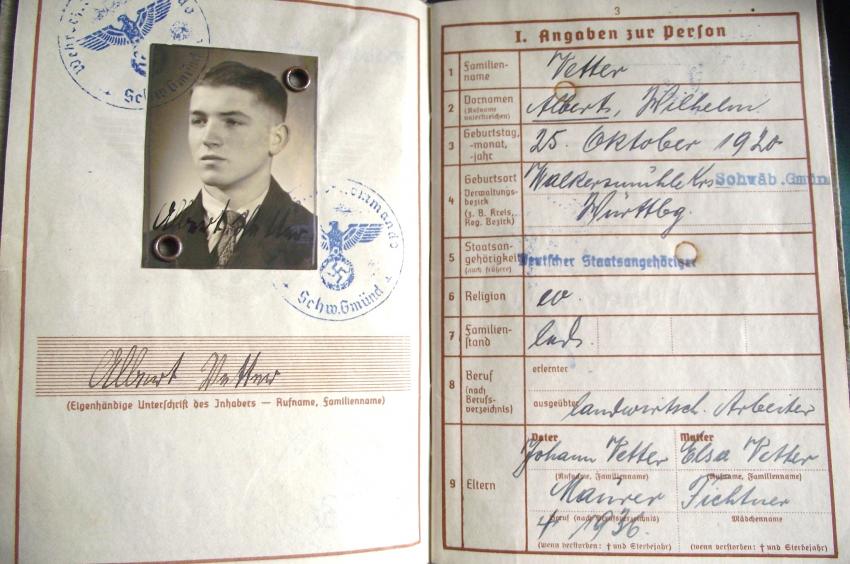 Schw. Gmünd
Albert Vetter
Schw. Gmünd
Albert Vetter
(Eigenhändige Unterschrift des Inhabers — Rufname, Familienname)
3
I. Angaben zur Person
1 Familien-
name
Vetter
2 Vornamen
(Rufname
unterstreichen)
Albert, Wilhelm
3 Geburtstag,
-monat,
-jahr
25. Oktober 1920
4 Geburtsort
Verwaltungs-
bezirk
(z. B. Kreis,
Reg. Bezirk)
Walkersmühle Krs Schwäb. Gmün
Württbg.
5 Staatsan-
gehörigkeit
(auch frühere)
Deutscher Staatsangehöriger
6 Religion
ev.
7 Familien-
stand
led.
8 Beruf
(nach
Berufs-
verzeichnis)
erlernter
ausgeübter landwirtsch. Arbeiter
9 Eltern
Vater
Johann Vetter
(Rufname, Familienname)
Maurer
Beruf (nach Berufsverzeichnis)
† 1936.
(wenn verstorben: † und Sterbejahr)
Mutter
Elsa Vetter
(Rufname, Familienname)
Fichtner
Mädchenname
(wenn verstorben: † und Sterbejahr)